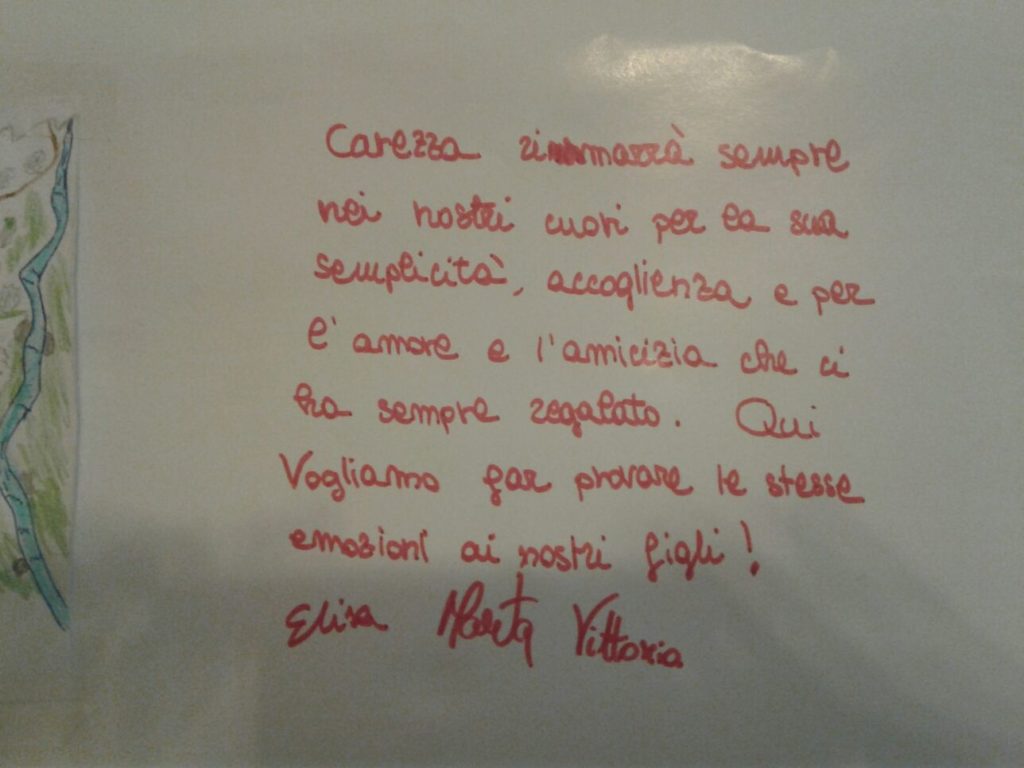 Carezza rimmarrà sempre
nei nostri cuori per la sua
semplicità, accoglienza e per
l'amore e l'amicizia che ci
ha sempre regalato. Qui
Vogliamo far provare le stesse
emozioni ai nostri figli!
Elisa Marta Vittoria